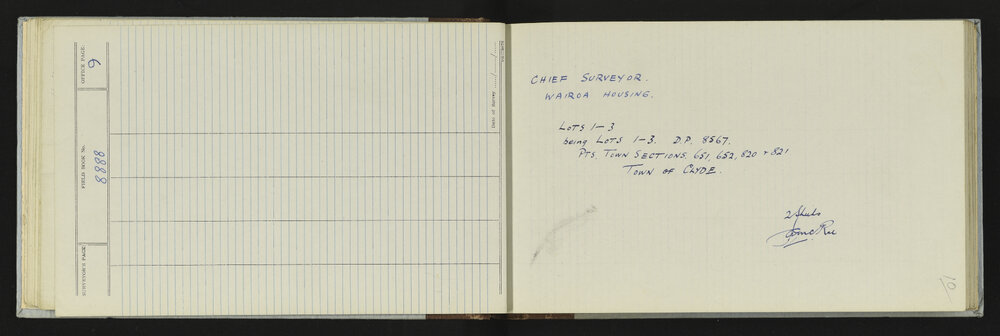 SURVEYOR'S PAGE
FIELD BOOK No.
8888
OFFICE PAGE.
9
Date of Survey ....../....../......
CHIEF SURVEYOR.
WAIROA HOUSING.
LOTS 1-3
being LOTS 1-3. D.P. 8567.
PTS. TOWN SECTIONS. 651, 652, 820 + 821
TOWN OF CLYDE.
2 Sheets
McRae
10/